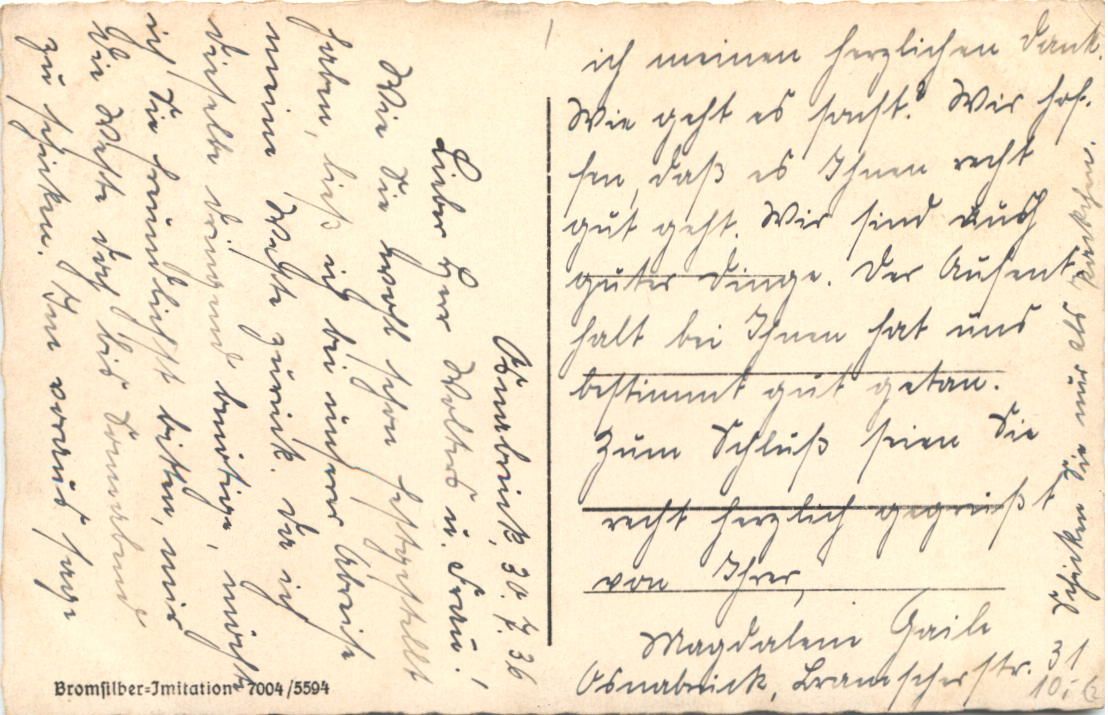 Osnabrück, 30.7.36
Lieber Herr Wolters u. Frau!
Wie Sie wohl schon festgestellt
haben, ließ ich bei unserer Abreise
meine Weste zurück. Da ich
dieselbe dringend benötige, möchte
ich Sie freundlichst bitten, mir
die Weste doch bis Sonnabend
zu schicken. Im voraus sage
ich meinen herzlichen Dank.
Wie geht es sonst? Wir hof-
fen, daß es Ihnen recht
gut geht. Wir sind auch
guter Dinge. Der Aufent-
halt bei Ihnen hat uns
bestimmt gut getan.
Zum Schluß seien Sie
recht herzlich gegrüßt
von Ihrer,
Magdalene Gaile
Osnabrück, Bramscherstr. 31
Schicken Sie nur als Päckchen.
10,-
Bromsilber=Imitation 7004/5594